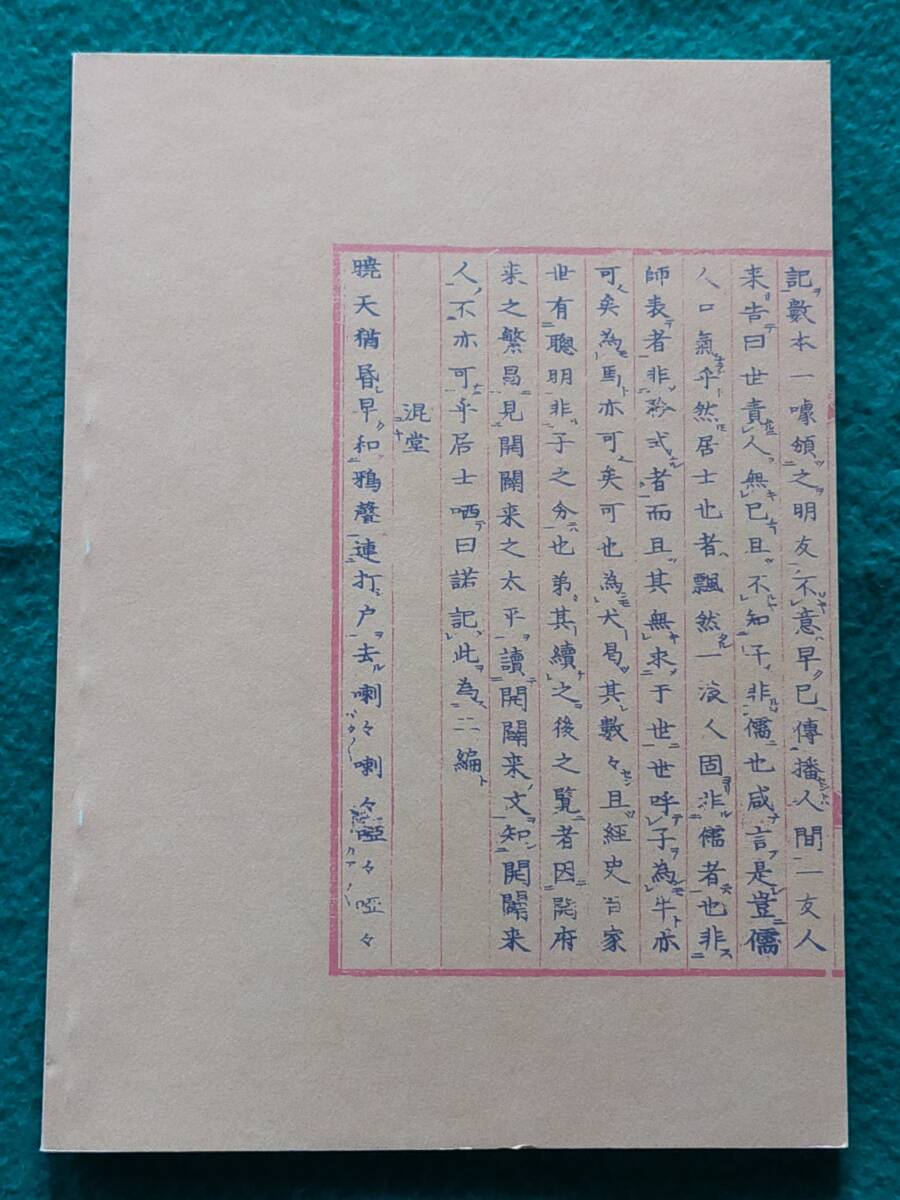 記數本一噱領之明友不意早已傳播人間一友人
来告曰世責人無已且不知子非儒也咸言是豈儒
人口氣乎然居士也者飄然一浪人固非儒者也非
師表者非矜式者而且其無求于世世呼子為牛亦
可矣為馬亦可矣可也為犬曷其數々且經史百家
世有聰明非子之分也弟其續之後之覧者因開府
来之繁昌見開闢来之太平讀開闢来文知開闢来
人不亦可乎居士哂曰諾記此為二編
混堂
曉天猶昏早和鴉聲連打戸去喇々喇々啞々啞々